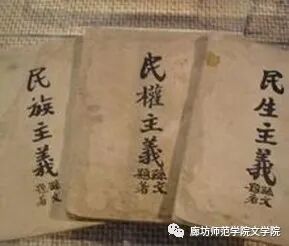 民族主義
孫文
題著
民權主義
孫文
題著
民生主義
孫文
題著
廊坊师范学院文学院